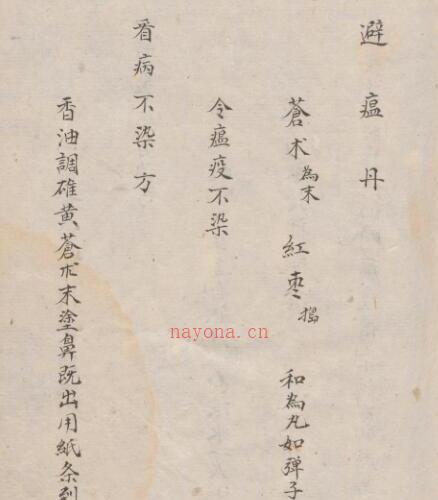 避瘟丹
蒼朮為末 紅枣搗 和為丸如弹子
令瘟疫不染
看病不染方
香油調雄黃蒼朮末塗鼻既出用紙条到
nayona.cn